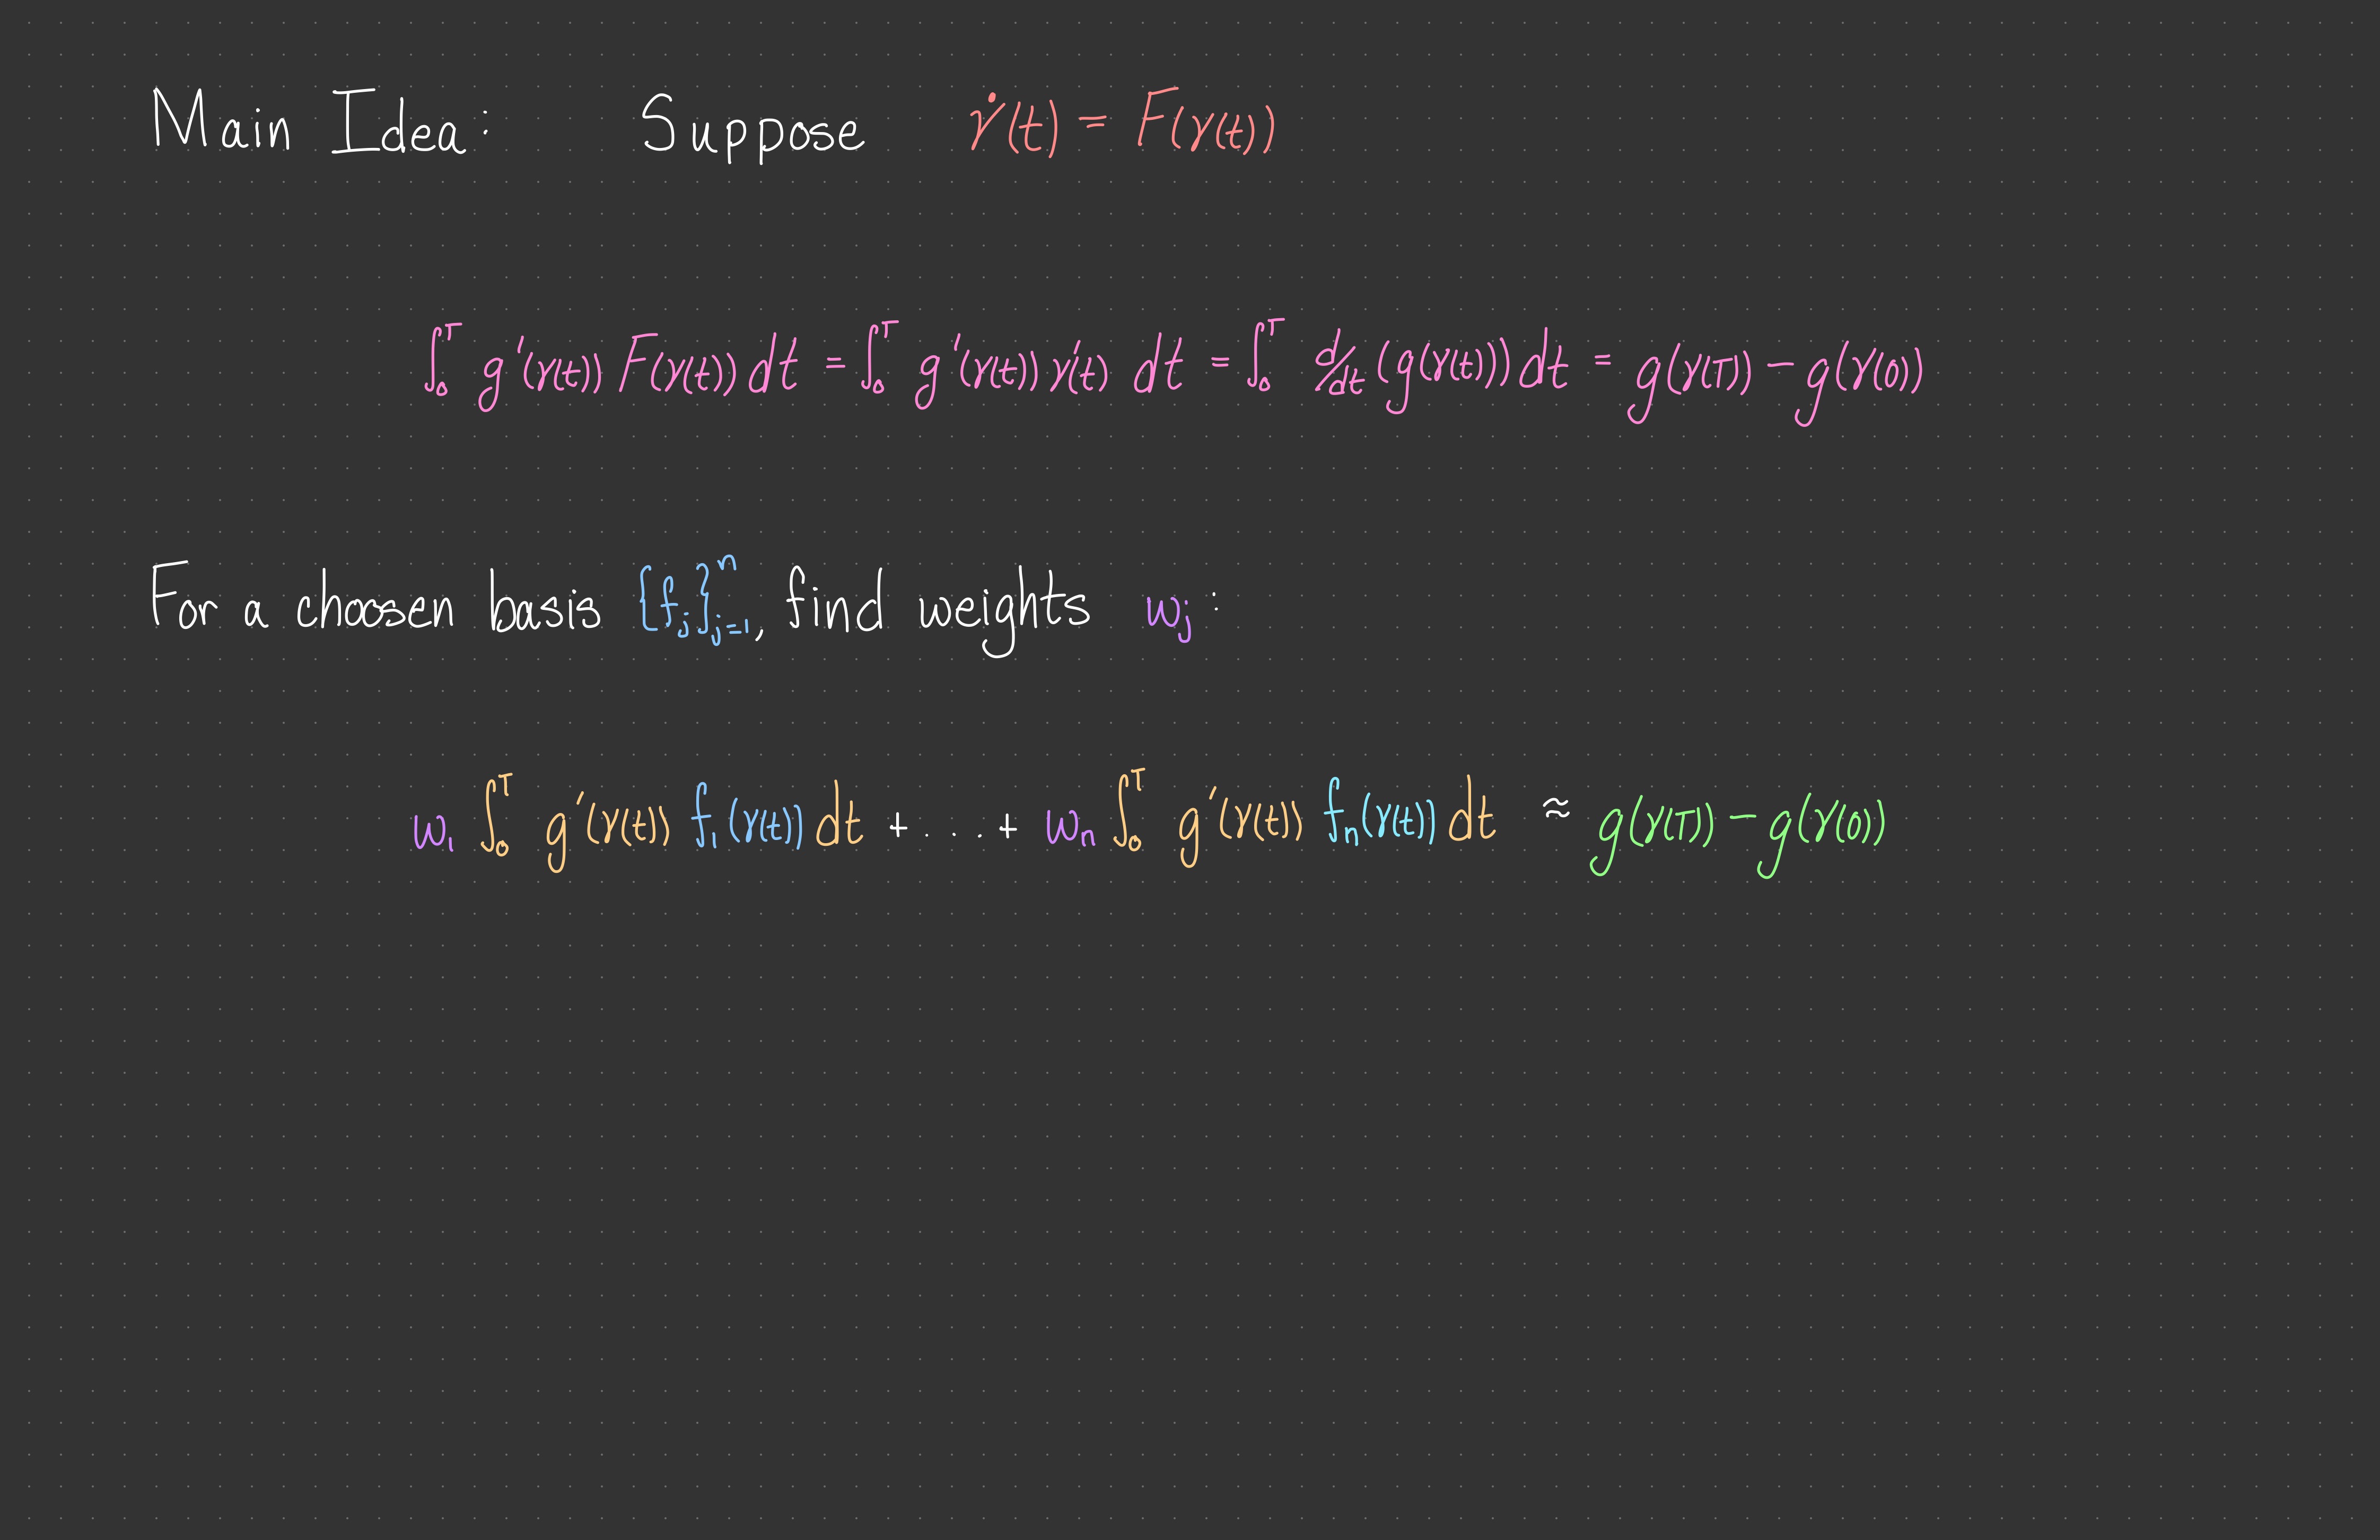 Main Idea: Suppose γ̇(t) = F(γ(t))
∫₀ᵀ g'(γ(t)) F(γ(t)) dt = ∫₀ᵀ g'(γ(t)) γ'(t) dt = ∫₀ᵀ d/dt (g(γ(t))) dt = g(γ(T)) − g(γ(0))
For a chosen basis {fⱼ}ⁿⱼ₌₁, find weights wⱼ:
w₁ ∫₀ᵀ g'(γ(t)) f₁(γ(t)) dt + . . . + wₙ ∫₀ᵀ g'(γ(t)) fₙ(γ(t)) dt ≈ g(γ(T)) − g(γ(0))